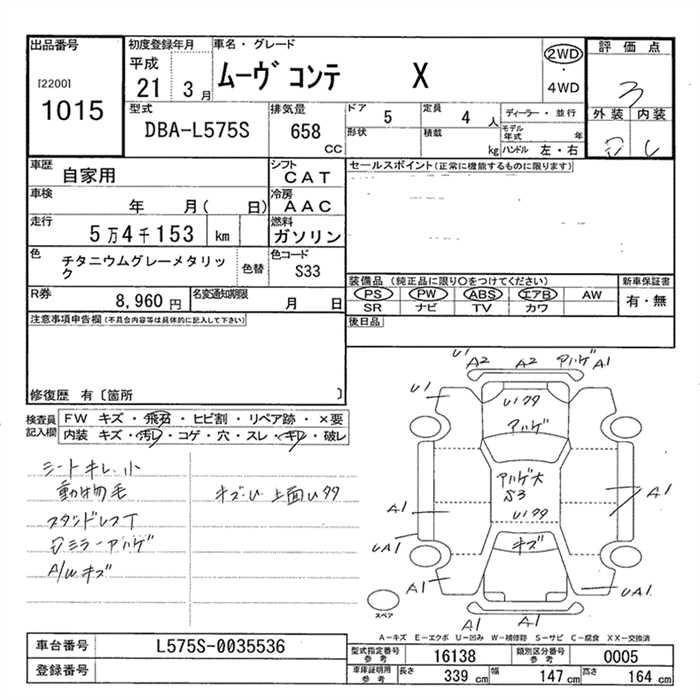 出品番号
[2200]
1015
初度登録年月
平成
21 3月
車名・グレード
ムーヴ コンテ X
2WD
・
4WD
評価点
3
外装 内装
型式
DBA-L575S
排気量
658
CC
ドア
5
定員
4 人
形状
積載
kg
ディーラー・並行
モデル年式 年
ハンドル 左・右
車歴
自家用
シフト
CAT
車検
年 月( 日)
冷房
AAC
走行
5万4千153 km
燃料
ガソリン
色
チタニウムグレーメタリック
色替
色コード
S33
R券
8,960円
名変通知期限
月 日
セールスポイント(正常に機能するものに限ります)
装備品(純正品に限り○をつけてください)
PS PW ABS エアB AW
SR ナビ TV カワ
新車保証書
有・無
後日品
注意事項申告欄(不具合内容等は具体的に記入して下さい)
修復歴 有〔箇所 〕
検査員記入欄
FW キズ・飛石・ヒビ割・リペア跡・×要
内装 キズ・汚レ・コゲ・穴・スレ・キレ・破レ
シートキレ小
動物毛
スタンドレスT
ミラーアハゲ
A/Wキズ
キズ・U 上面Uタタ
U1 A2 A2 アハゲ A1
U1
Uタタ
アハゲ
アハゲ大
S3
Uタタ
キズ
A1
A1
UA1
A1
UA1
A1
A1
スペア
A-キズ E-エクボ U-凹み W-補修跡 S-サビ C-腐食 XX-交換済
車台番号
L575S-0035536
登録番号
型式指定番号
参考
16138
類別区分番号
参考
0005
車庫証明用
参考
長さ 339 cm
幅 147 cm
高さ 164 cm